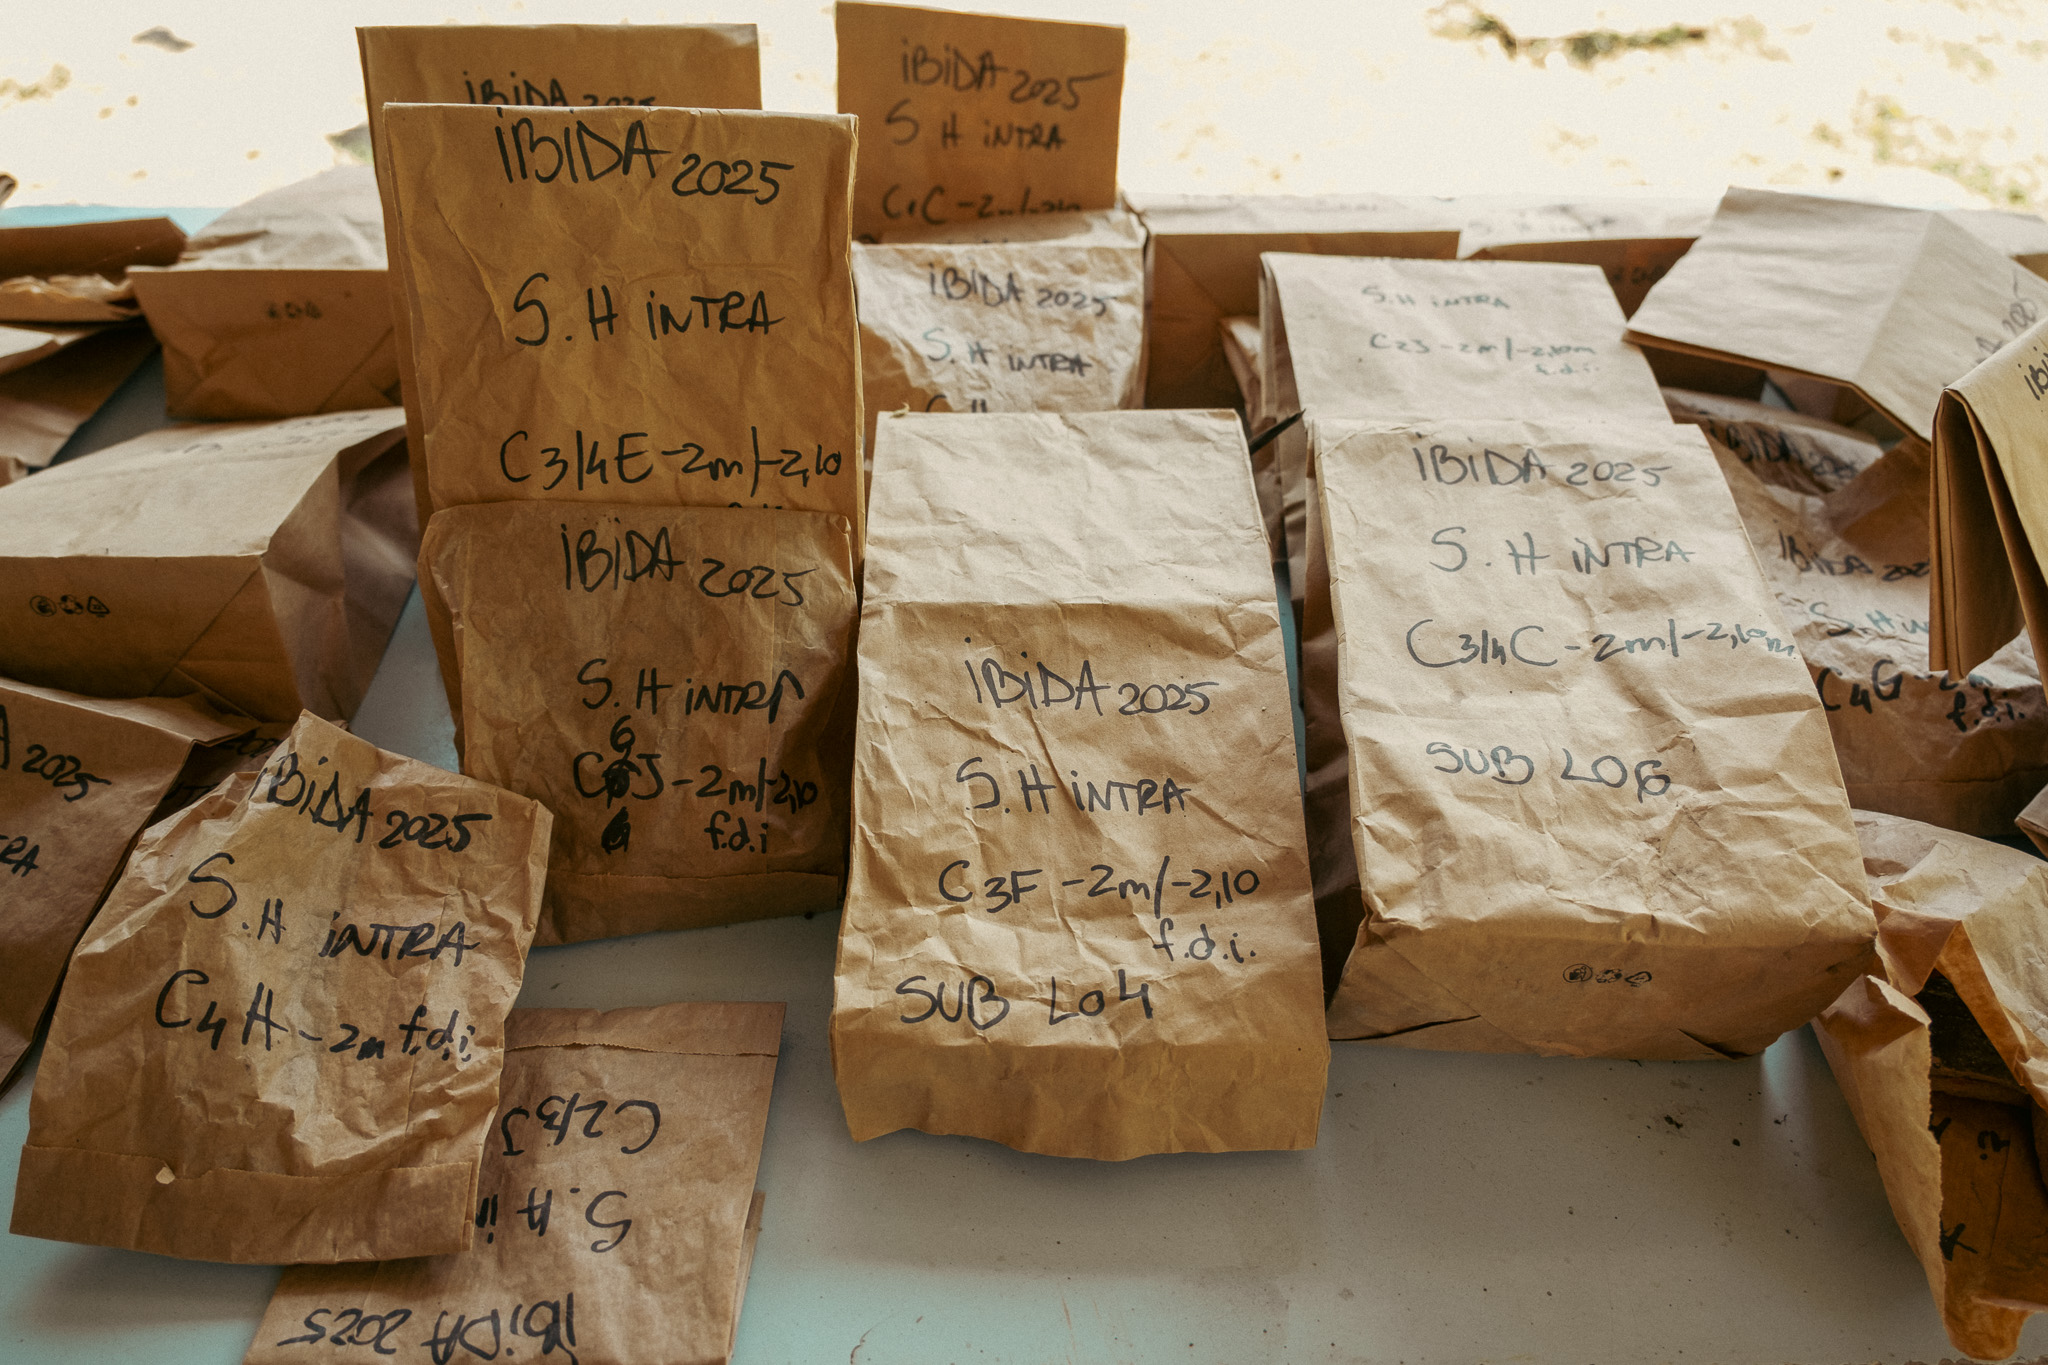 IBIDA 2025
IBIDA 2025
S. H INTRA
C3/4E -2m/-2,10
IBIDA 2025
S H INTRA
C1C -2m/-2,10
IBIDA 2025
S. H INTRA
S.H INTRA
C2J -2m/-2,10m
f.d.i.
IBIDA 2025
S. H INTRA
G
J -2m/-2,10
G
f.d.i
IBIDA 2025
S. H INTRA
C3F -2m/-2,10
f.d.i.
SUB L04
IBIDA 2025
S. H INTRA
C3/4C -2m/-2,10m
SUB L06
IBIDA 2025
IBIDA 202
S.H IN
C4G -2m
f.d.i.
IBI
A 2025
RA
IBIDA 2025
S.H INTRA
C4H -2m f.d.i.
IBIDA 2025
S. H I
C2/3J